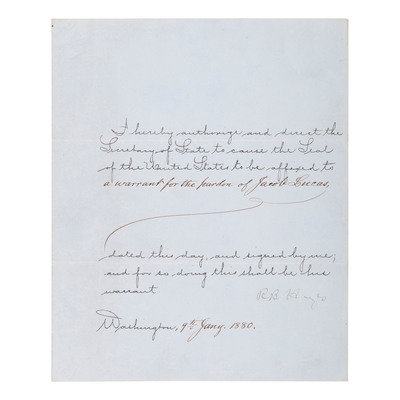 I hereby authorize and direct the
Secretary of State to cause the Seal
of the United States to be affixed to
a warrant for the pardon of Jacob Lucas,
dated this day, and signed by me;
and for so doing this shall be his
warrant
R.B. Hayes
Washington, 9th Jany. 1880.